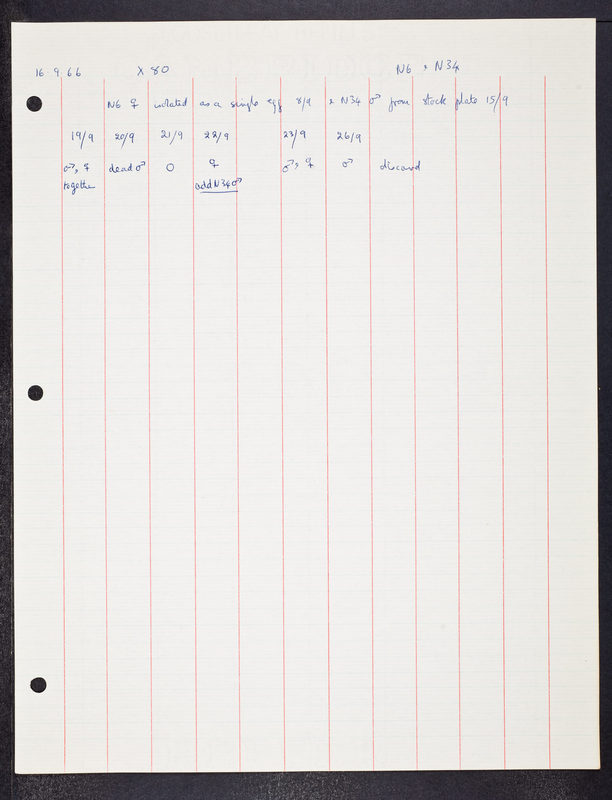 16 9 66 X 80 N6 x N34
N6 ♀ isolated as a single egg 8/9 x N34 ♂ from stock plate 15/9
19/9 20/9 21/9 22/9 23/9 26/9
♂, ♀ dead ♂ O ♀ ♂, ♀ ♂ discard
together add N34 ♂